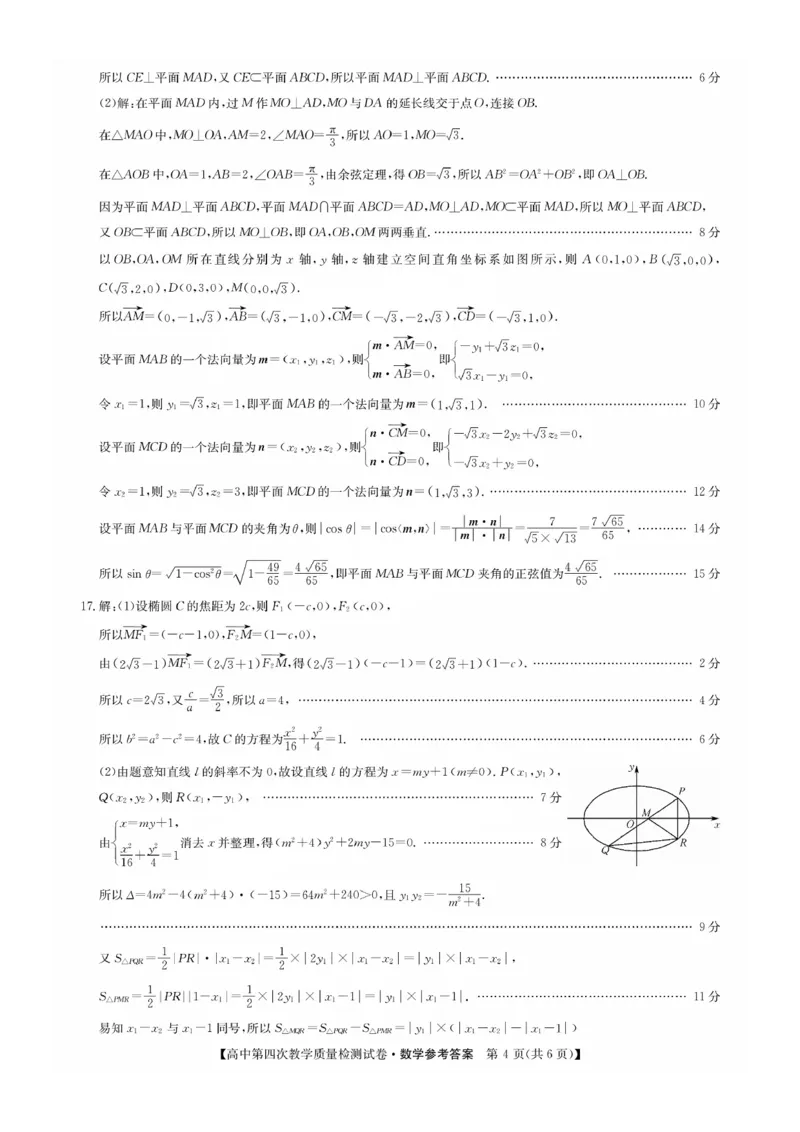 所以CE⊥平面MAD,又CE⊂平面ABCD,所以平面MAD⊥平面ABCD. …… 6分
(2)解:在平面MAD内,过M作MO⊥AD,MO与DA的延长线交于点O,连接OB.
在△MAO中,MO⊥OA,AM=2,∠MAO=π/3,所以AO=1,MO=√3.
在△AOB中,OA=1,AB=2,∠OAB=π/3,由余弦定理,得OB=√3,所以AB²=OA²+OB²,即OA⊥OB.
因为平面MAD⊥平面ABCD,平面MAD∩平面ABCD=AD,MO⊥AD,MO⊂平面MAD,所以MO⊥平面ABCD,
又OB⊂平面ABCD,所以MO⊥OB,即OA,OB,OM两两垂直. …… 8分
以OB,OA,OM所在直线分别为x轴,y轴,z轴建立空间直角坐标系如图所示,则A(0,1,0),B(√3,0,0),
C(√3,2,0),D(0,3,0),M(0,0,√3).
所以AM→=(0,-1,√3),AB→=(√3,-1,0),CM→=(-√3,-2,√3),CD→=(-√3,1,0).
设平面MAB的一个法向量为m=(x₁,y₁,z₁),则{m·AM→=0, m·AB→=0, 即{-y₁+√3z₁=0, √3x₁-y₁=0,
令x₁=1,则y₁=√3,z₁=1,即平面MAB的一个法向量为m=(1,√3,1). …… 10分
设平面MCD的一个法向量为n=(x₂,y₂,z₂),则{n·CM→=0, n·CD→=0, 即{-√3x₂-2y₂+√3z₂=0, -√3x₂+y₂=0,
令x₂=1,则y₂=√3,z₂=3,即平面MCD的一个法向量为n=(1,√3,3). …… 12分
设平面MAB与平面MCD的夹角为θ,则|cos θ|=|cos⟨m,n⟩|=|m·n|/(|m|·|n|)=7/(√5×√13)=7√65/65, …… 14分
所以sin θ=√(1-cos²θ)=√(1-49/65)=4√65/65,即平面MAB与平面MCD夹角的正弦值为4√65/65. …… 15分
17.解:(1)设椭圆C的焦距为2c,则F₁(-c,0),F₂(c,0),
所以MF₁→=(-c-1,0),F₂M→=(1-c,0),
由(2√3-1)MF₁→=(2√3+1)F₂M→,得(2√3-1)(-c-1)=(2√3+1)(1-c). …… 2分
所以c=2√3,又c/a=√3/2,所以a=4, …… 4分
所以b²=a²-c²=4,故C的方程为x²/16+y²/4=1. …… 6分
(2)由题意知直线l的斜率不为0,故设直线l的方程为x=my+1(m≠0).P(x₁,y₁),
Q(x₂,y₂),则R(x₁,-y₁), …… 7分
由{x=my+1, x²/16+y²/4=1 消去x并整理,得(m²+4)y²+2my-15=0. …… 8分
y
P
M
O
x
Q
R
所以Δ=4m²-4(m²+4)·(-15)=64m²+240>0,且y₁y₂=-15/(m²+4).
…… 9分
又S△PQR=1/2|PR|·|x₁-x₂|=1/2×|2y₁|×|x₁-x₂|=|y₁|×|x₁-x₂|,
S△PMR=1/2|PR||1-x₁|=1/2×|2y₁|×|x₁-1|=|y₁|×|x₁-1|. …… 11分
易知x₁-x₂与x₁-1同号,所以S△MQR=S△PQR-S△PMR=|y₁|×(|x₁-x₂|-|x₁-1|)
【高中第四次教学质量检测试卷·数学参考答案 第4页(共6页)】